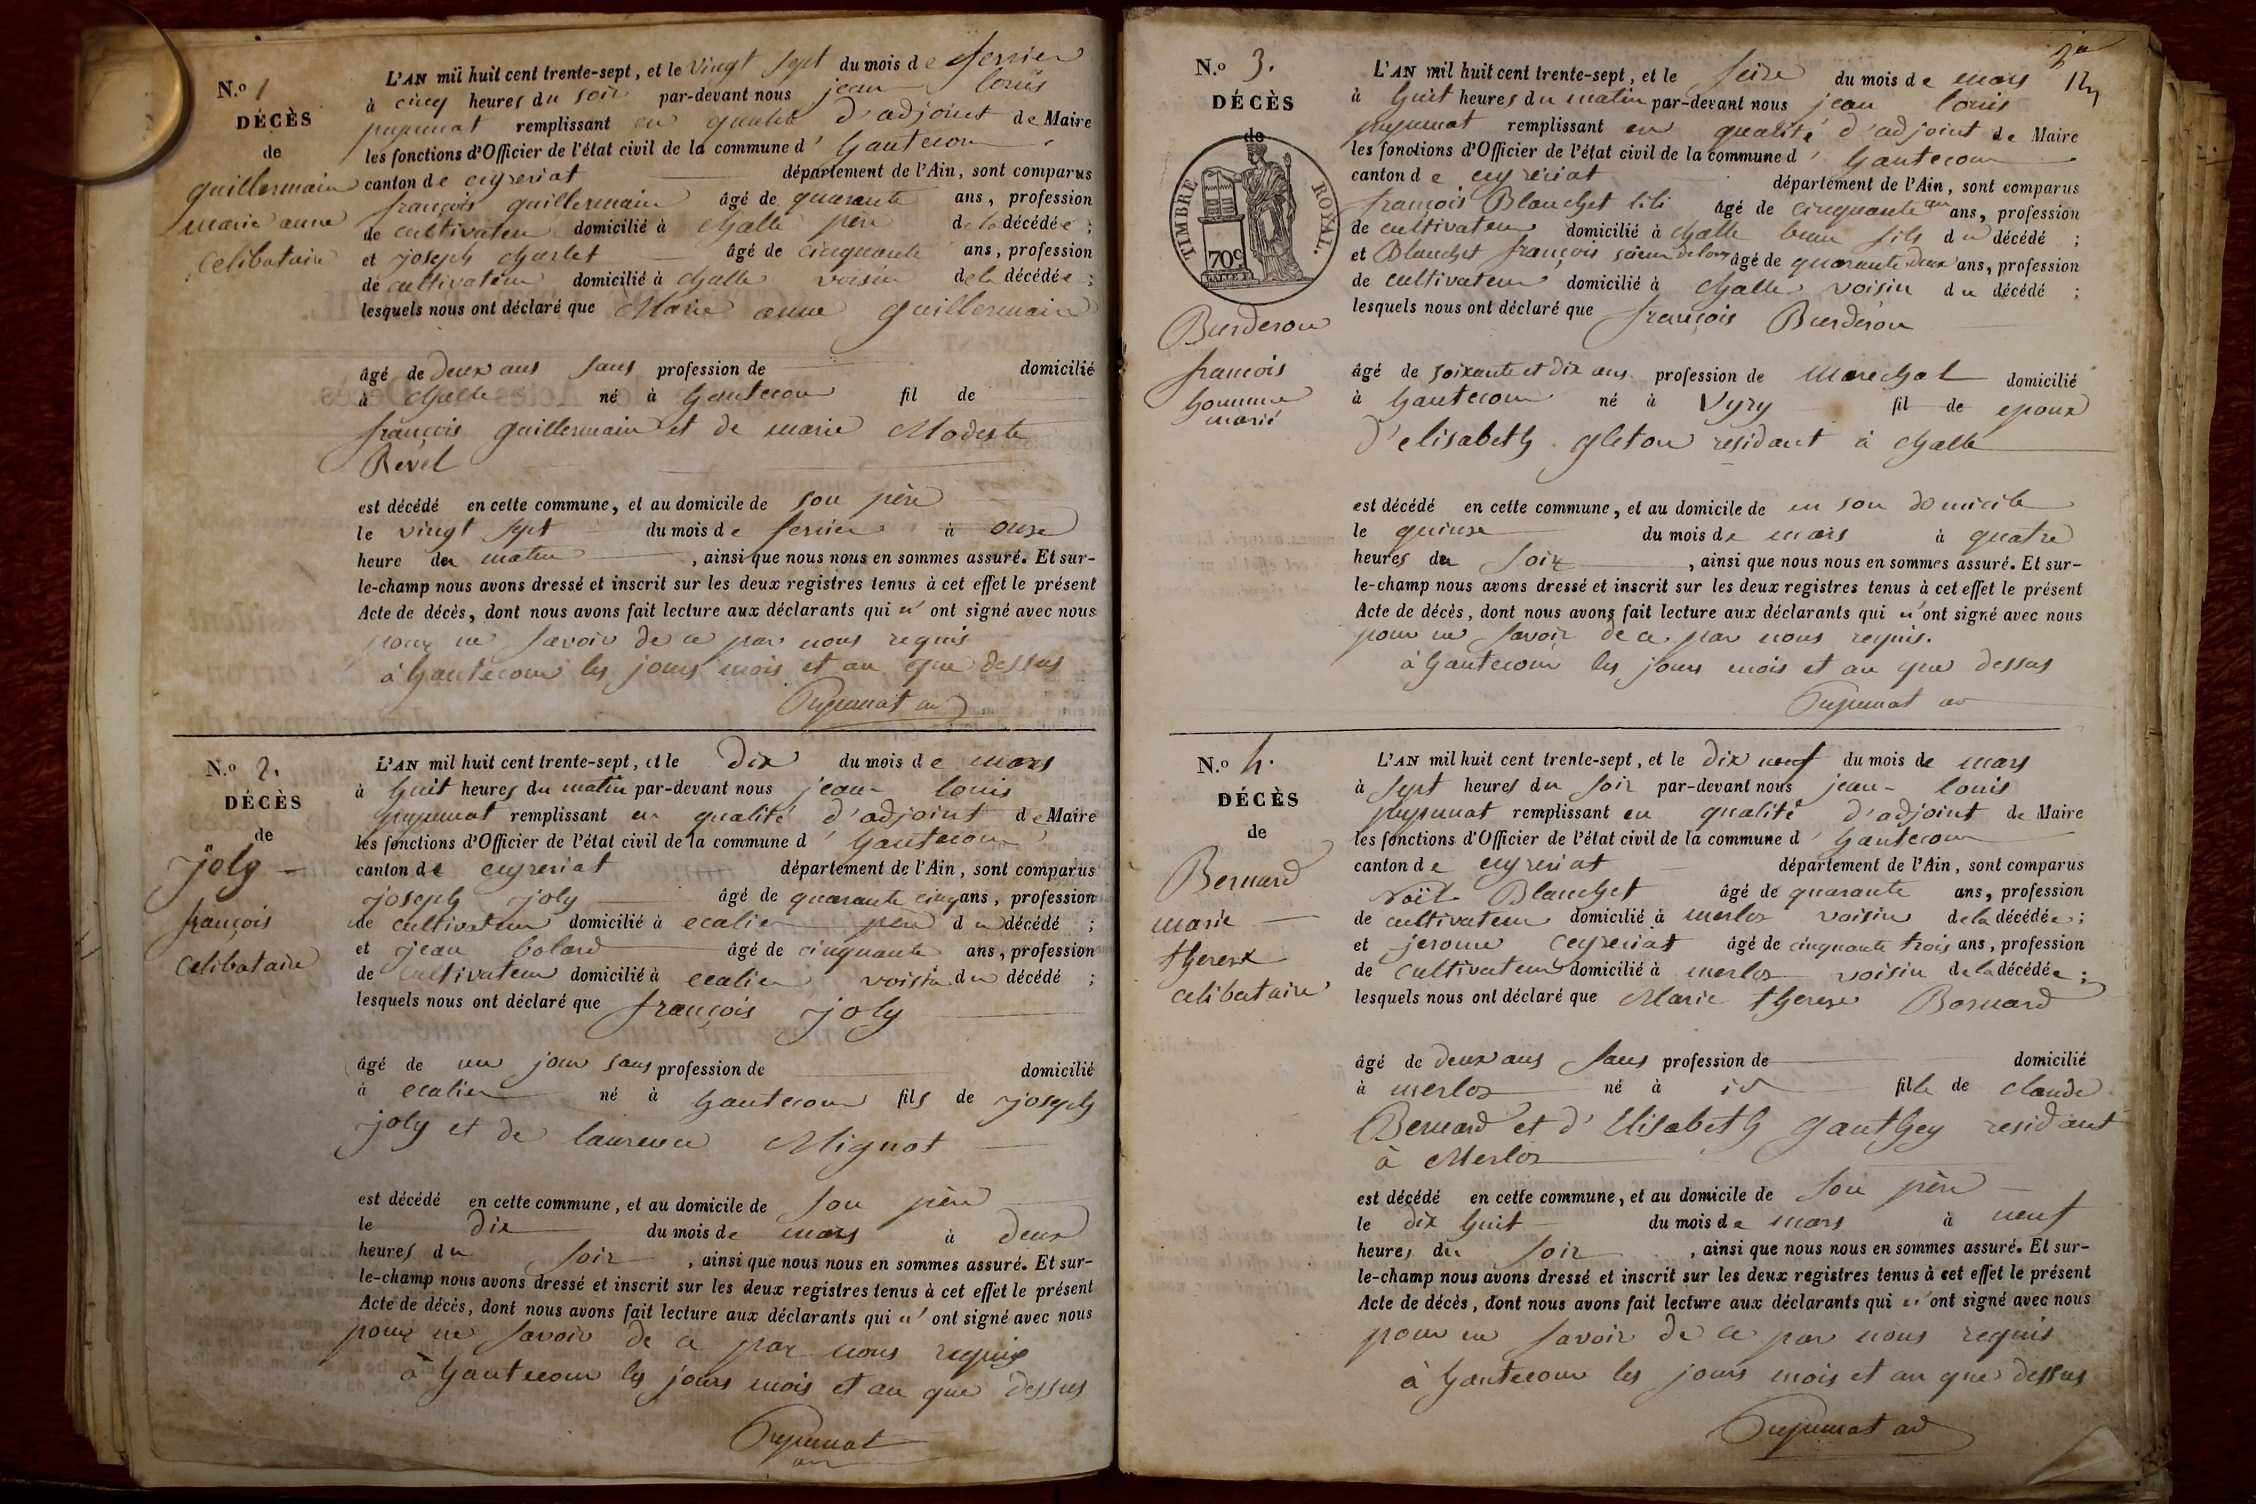 N.o 1
DÉCÈS
de
guillermain
marie anne
celibataire
L'AN mil huit cent trente-sept, et le vingt sept du mois de fevrier
à cinq heures du soir par-devant nous jean louis
pupunat remplissant en qualité d'adjoint de Maire
les fonctions d'Officier de l'état civil de la commune d' hautecour
canton de ceyzeriat département de l'Ain, sont comparus
françois guillermain âgé de quarante ans, profession
de cultivateur domicilié à challe père de la décédée ;
et joseph charlet âgé de cinquante ans, profession
de cultivateur domicilié à challe voisin de la décédée ;
lesquels nous ont déclaré que Marie anne guillermain
âgé de deux ans sans profession de domicilié
à challe né à hautecour fil de
françois guillermain et de marie Modeste
Revel
est décédé en cette commune, et au domicile de son père
le vingt sept du mois de fevrier à onze
heure du matin , ainsi que nous nous en sommes assuré. Et sur-
le-champ nous avons dressé et inscrit sur les deux registres tenus à cet effet le présent
Acte de décès, dont nous avons fait lecture aux déclarants qui n'ont signé avec nous
pour ne savoir de ce par nous requis
à hautecour les jours mois et an que dessus
Pupunat ad
N.o 2.
DÉCÈS
de
joly
françois
celibataire
L'AN mil huit cent trente-sept, et le dix du mois de mars
à huit heures du matin par-devant nous jean louis
pupunat remplissant en qualité d'adjoint de Maire
les fonctions d'Officier de l'état civil de la commune d' hautecour
canton de ceyzeriat département de l'Ain, sont comparus
joseph joly âgé de quarante cinq ans, profession
de cultivateur domicilié à ecalier père du décédé ;
et jean bolard âgé de cinquante ans, profession
de cultivateur domicilié à ecalier voisin du décédé ;
lesquels nous ont déclaré que françois joly
âgé de un jour sans profession de domicilié
à ecalier né à hautecour fils de joseph
joly et de laurence Mignot
est décédé en cette commune, et au domicile de son père
le dix du mois de mars à deux
heures du soir , ainsi que nous nous en sommes assuré. Et sur-
le-champ nous avons dressé et inscrit sur les deux registres tenus à cet effet le présent
Acte de décès, dont nous avons fait lecture aux déclarants qui n'ont signé avec nous
pour ne savoir de ce par nous requis
à hautecour les jours mois et an que dessus
Pupunat
ad
N.o 3.
DÉCÈS
de
TIMBRE ROYAL.
70c
Burderon
françois
homme
marié
L'AN mil huit cent trente-sept, et le seize du mois de mars
à huit heures du matin par-devant nous jean louis
pupunat remplissant en qualité d'adjoint de Maire
les fonctions d'Officier de l'état civil de la commune d' hautecour
canton de ceyzeriat département de l'Ain, sont comparus
françois Blanchet âgé de cinquante ans, profession
de cultivateur domicilié à challe beau fils du décédé ;
et Blanchet françois âgé de quarante deux ans, profession
de cultivateur domicilié à challe voisin du décédé ;
lesquels nous ont déclaré que françois Burderon
âgé de soixante et dix ans profession de Marechal domicilié
à hautecour né à fil de epoux
d'elisabeth gleton residant à challe
est décédé en cette commune, et au domicile de en son domicile
le quinze du mois de mars à quatre
heures du soir , ainsi que nous nous en sommes assuré. Et sur-
le-champ nous avons dressé et inscrit sur les deux registres tenus à cet effet le présent
Acte de décès, dont nous avons fait lecture aux déclarants qui n'ont signé avec nous
pour ne savoir de ce par nous requis.
à hautecour les jours mois et an que dessus
Pupunat ad
N.o 4.
DÉCÈS
de
Bernard
marie
therese
celibataire
L'AN mil huit cent trente-sept, et le dix neuf du mois de mars
à sept heures du soir par-devant nous jean louis
pupunat remplissant en qualité d'adjoint de Maire
les fonctions d'Officier de l'état civil de la commune d' hautecour
canton de ceyzeriat département de l'Ain, sont comparus
Blanchet âgé de quarante ans, profession
de cultivateur domicilié à merloz voisin de la décédée ;
et jerome ceyzeriat âgé de cinquante trois ans, profession
de cultivateur domicilié à merloz voisin de la décédée ;
lesquels nous ont déclaré que Marie therese Bernard
âgé de deux ans sans profession de domicilié
à merloz né à id fille de claude
Bernard et d'Elisabeth gauthey residant
à Merloz
est décédé en cette commune, et au domicile de son père
le dix huit du mois de mars à neuf
heures du soir , ainsi que nous nous en sommes assuré. Et sur-
le-champ nous avons dressé et inscrit sur les deux registres tenus à cet effet le présent
Acte de décès, dont nous avons fait lecture aux déclarants qui n'ont signé avec nous
pour ne savoir de ce par nous requis
à hautecour les jours mois et an que dessus
Pupunat ad